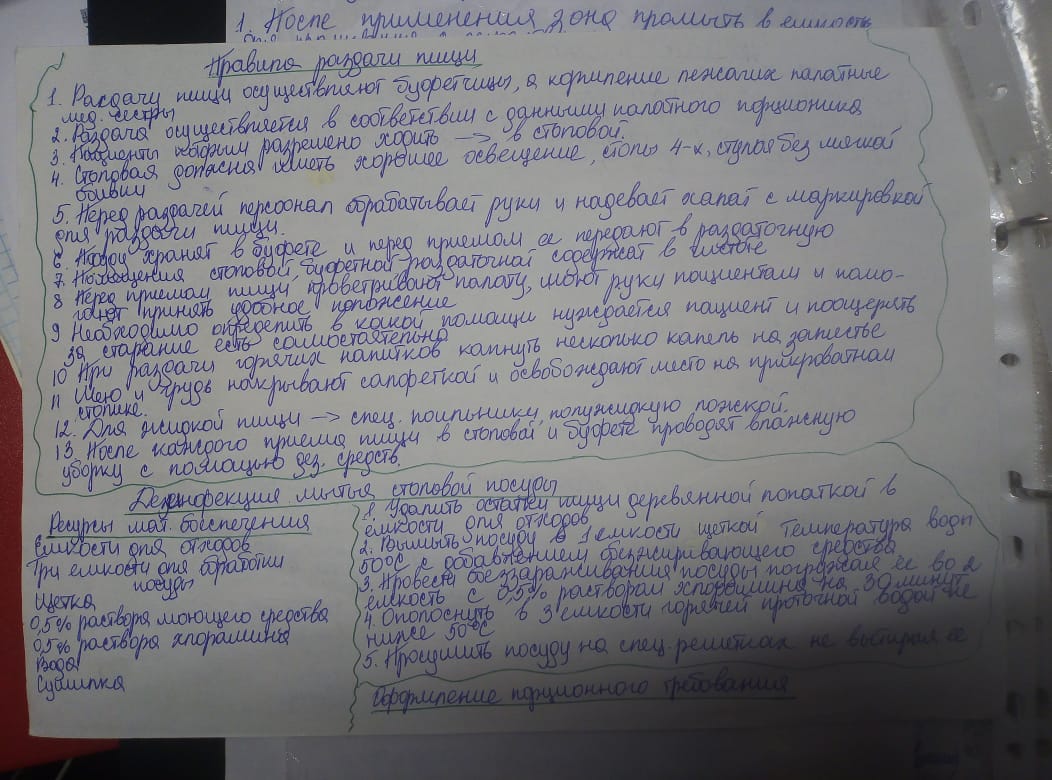 1. После применения зона промыть в емкость
Правила раздачи пищи
1. Раздачу пищи осуществляют буфетчицы, а кормление лежачих палатные
мед. сестры
2. Раздача осуществляется в соответствии с данными палатного порционика
3. Пациенты кафым разрешено ходить → в столовой.
4. Столовая должна иметь хорошее освещение, столы 4-х, стулья без мягкой
обивки
5. Перед раздачей персонал обрабатывает руки и надевает халат с маркировкой
для раздачи пищи.
6. хранят в буфете и перед приемом ее передают в раздаточную
7. Помещения столовой, буфетной раздаточной содержат в чистоте
8 Перед приемом пищи проветривают палату, моют руки пациентам и помо-
гают принять удобное положение
9 Необходимо определить в какой помощи нуждается пациент и поощерять
за старание есть самостоятельно
10 При раздачи горячих напитков капнуть несколько капель на запястье
11 Шею и грудь накрывают салфеткой и освобождают место на прикроватном
столике.
12. Для жидкой пищи → спец. поильники, полужидкую ложкой.
13. После каждого приема пищи в столовой и буфете проводят влажную
уборку с помощью дез. средств.
Дезинфекция мытья столовой посуды
Ресурсы мат. беспечения
Емкости для отходов
Три емкости для обработки
посуды
Щетка
0,5% раствора моющего средства
0,5% раствора хлорамина
Вода
Сушилка
1. Удалить остатки пищи деревянной лопаткой в
емкости для отходов
2. Вымыть посуду в 1 емкости щеткой Температура воды
50°С с добавлением безжиривающего средства
3. Провести беззараживания посуды погружая ее во 2
емкость с 0,5% раствором хлорамина на 30 минут
4. Ополоснуть в 3 емкости горячей проточной водой не
ниже 50°С
5. Просушить посуду на спец. решетках не вытирая ее
Оформление порционного требования